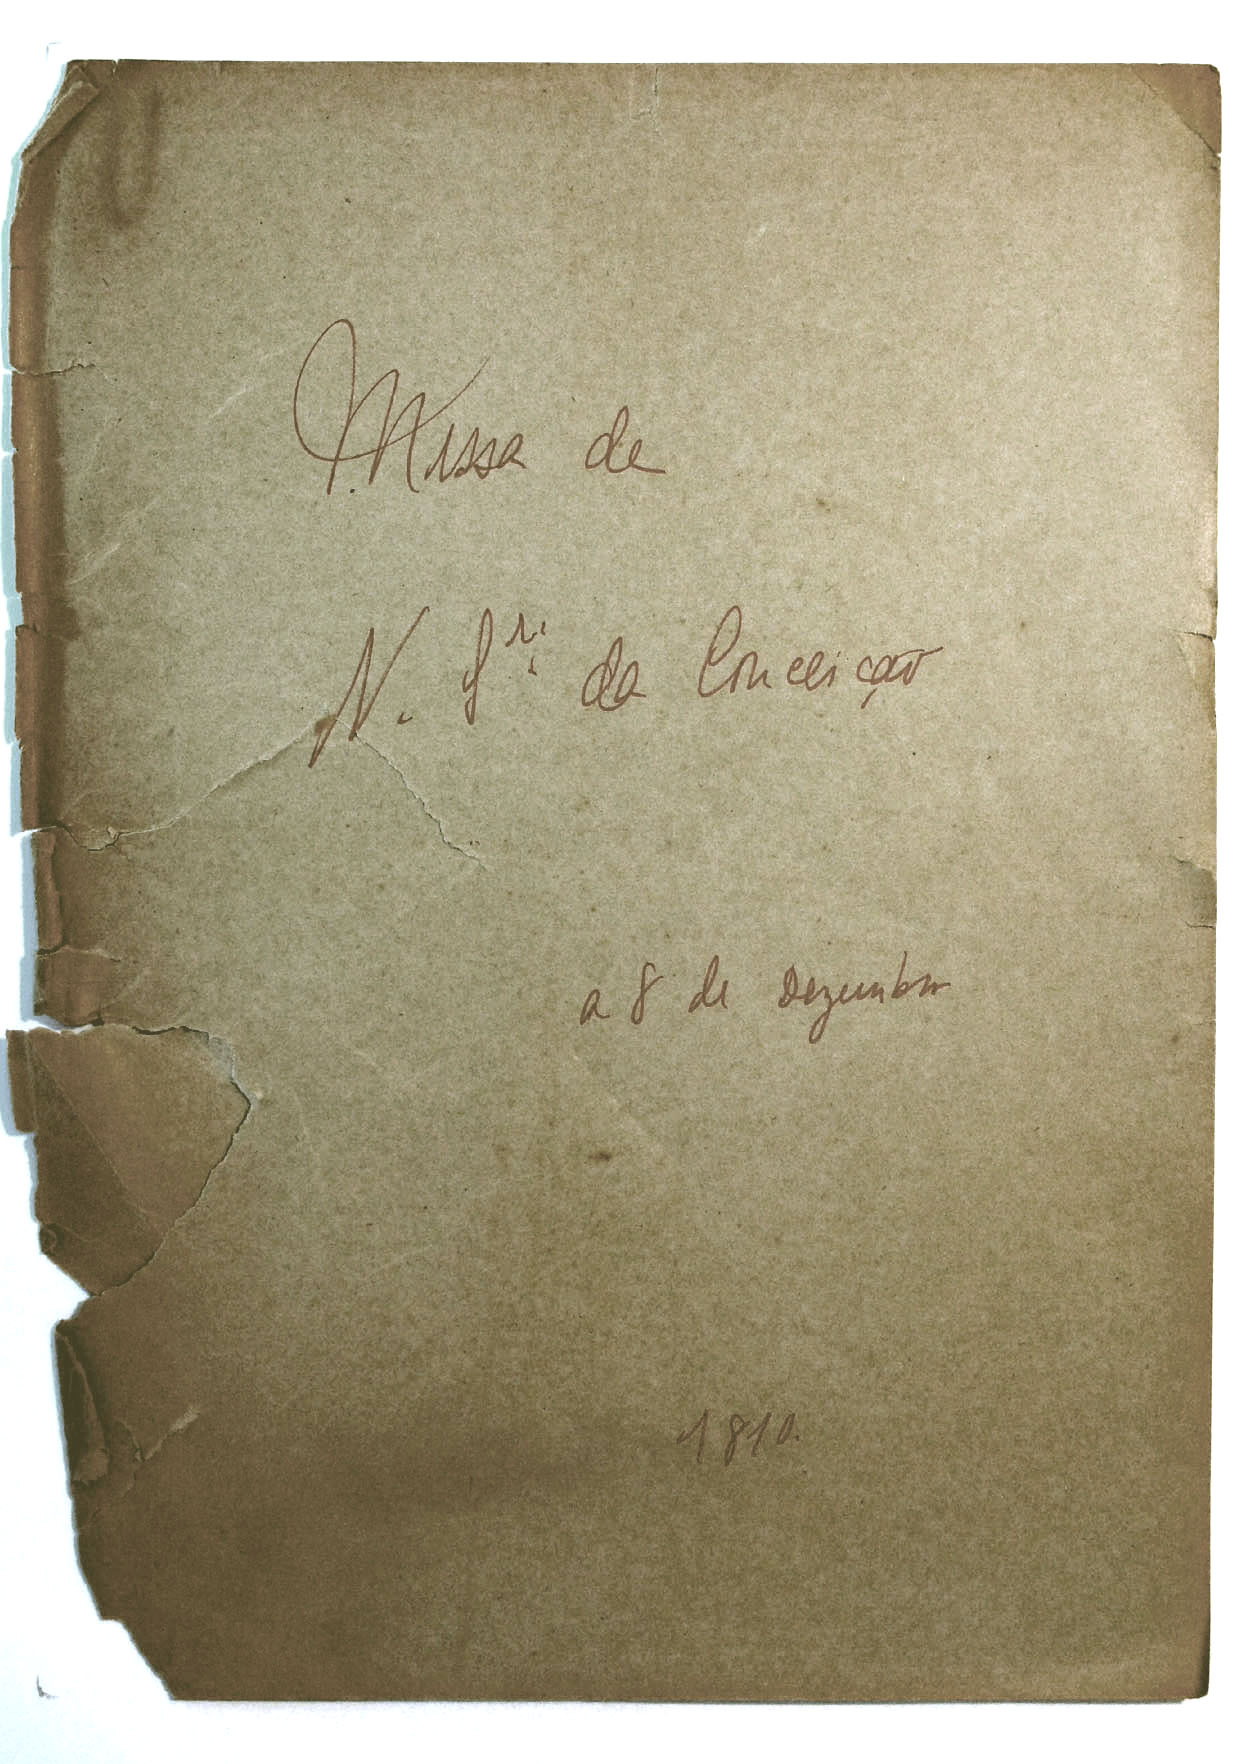 Missa de
N. Sr.ª da Conceição
a 8 de Dezembro
1810.